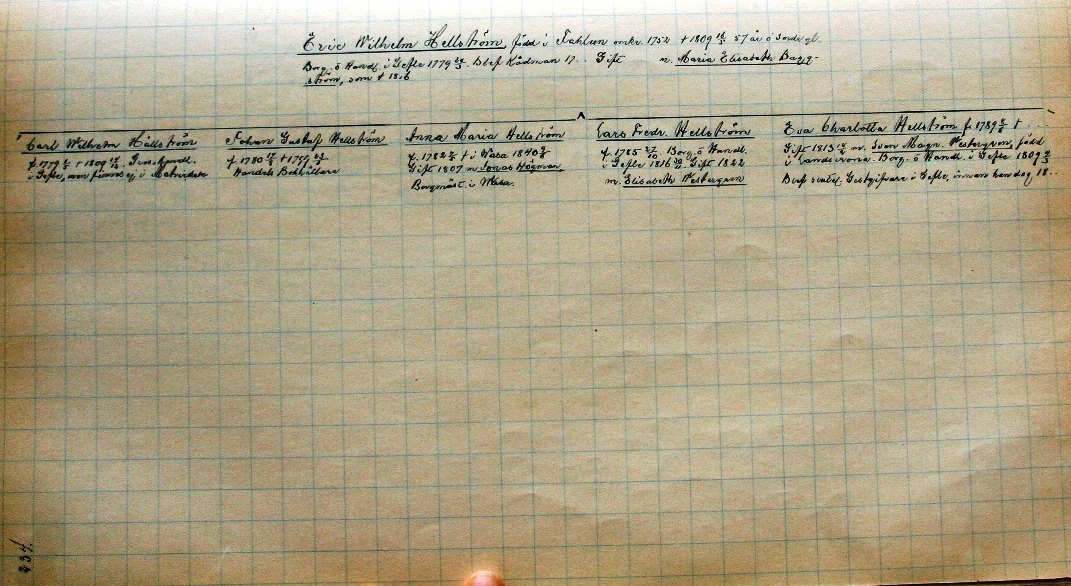 Eric Wilhelm Hellström, född i Fahlun omkr. 1752 † 1809 57 år o 3 ondr gl.
Borg. o Handl. i Gefle 1779 Blef Rådman 17.. Gift m. Maria Elisabeth Bagg-
ström, som † 1816
Carl Wilhelm Hällström
f. 1779 † 1809
i Gefle, men finnes ej i
Johan Gustaf Hellström
f 1780 † 1799
Handels Bokhållare
Anna Maria Hellström
f. 1782 † i Wasa 1840
Gift 1807 m Jonas Högman,
Borgmäst. i Wasa.
Lars Fredr. Hellström
f. 1785 27/10 Borg. o Handl.
i Gefle 1816 Gift 1822
m. Elisabeth Westergren
Eva Charlotta Hellström f. 1789 †
Gift 1813 m. Sven Magn. Westergren, född
i Landscrona. Borg. o Handl. i Gefle 1809
Blef sedel. Gestgifvare i Gefle, innan han dog 18..
234.